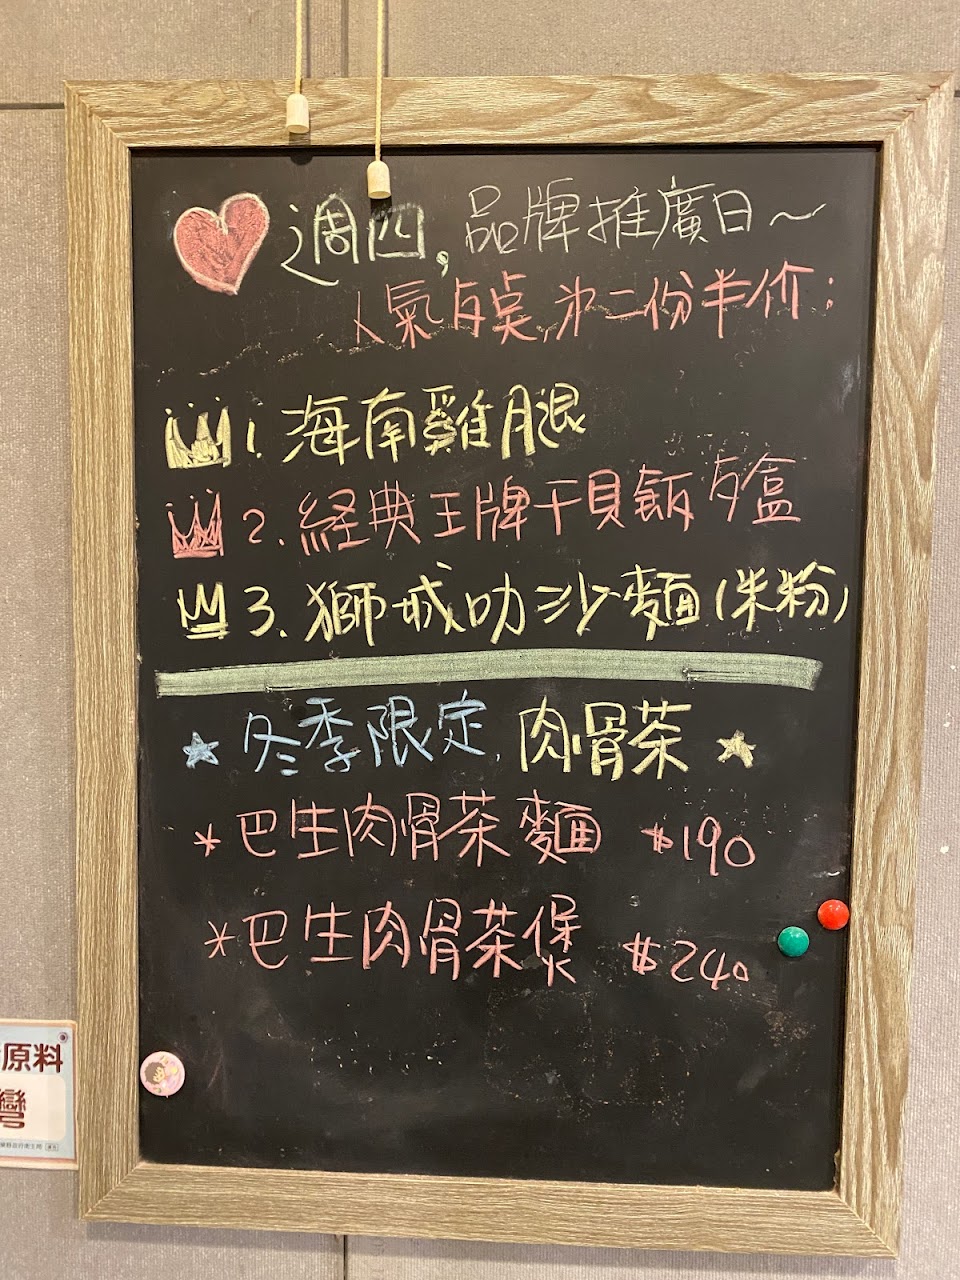 週四,品牌推廣日~
人氣桌,第二份半价:
1.海南雞腿
2.経典王牌干貝飯盒
3.獅城叻沙麵(米粉)
冬季限定,肉骨茶
*巴生肉骨茶麵 $190
*巴生肉骨茶煲 $240
原料
灣